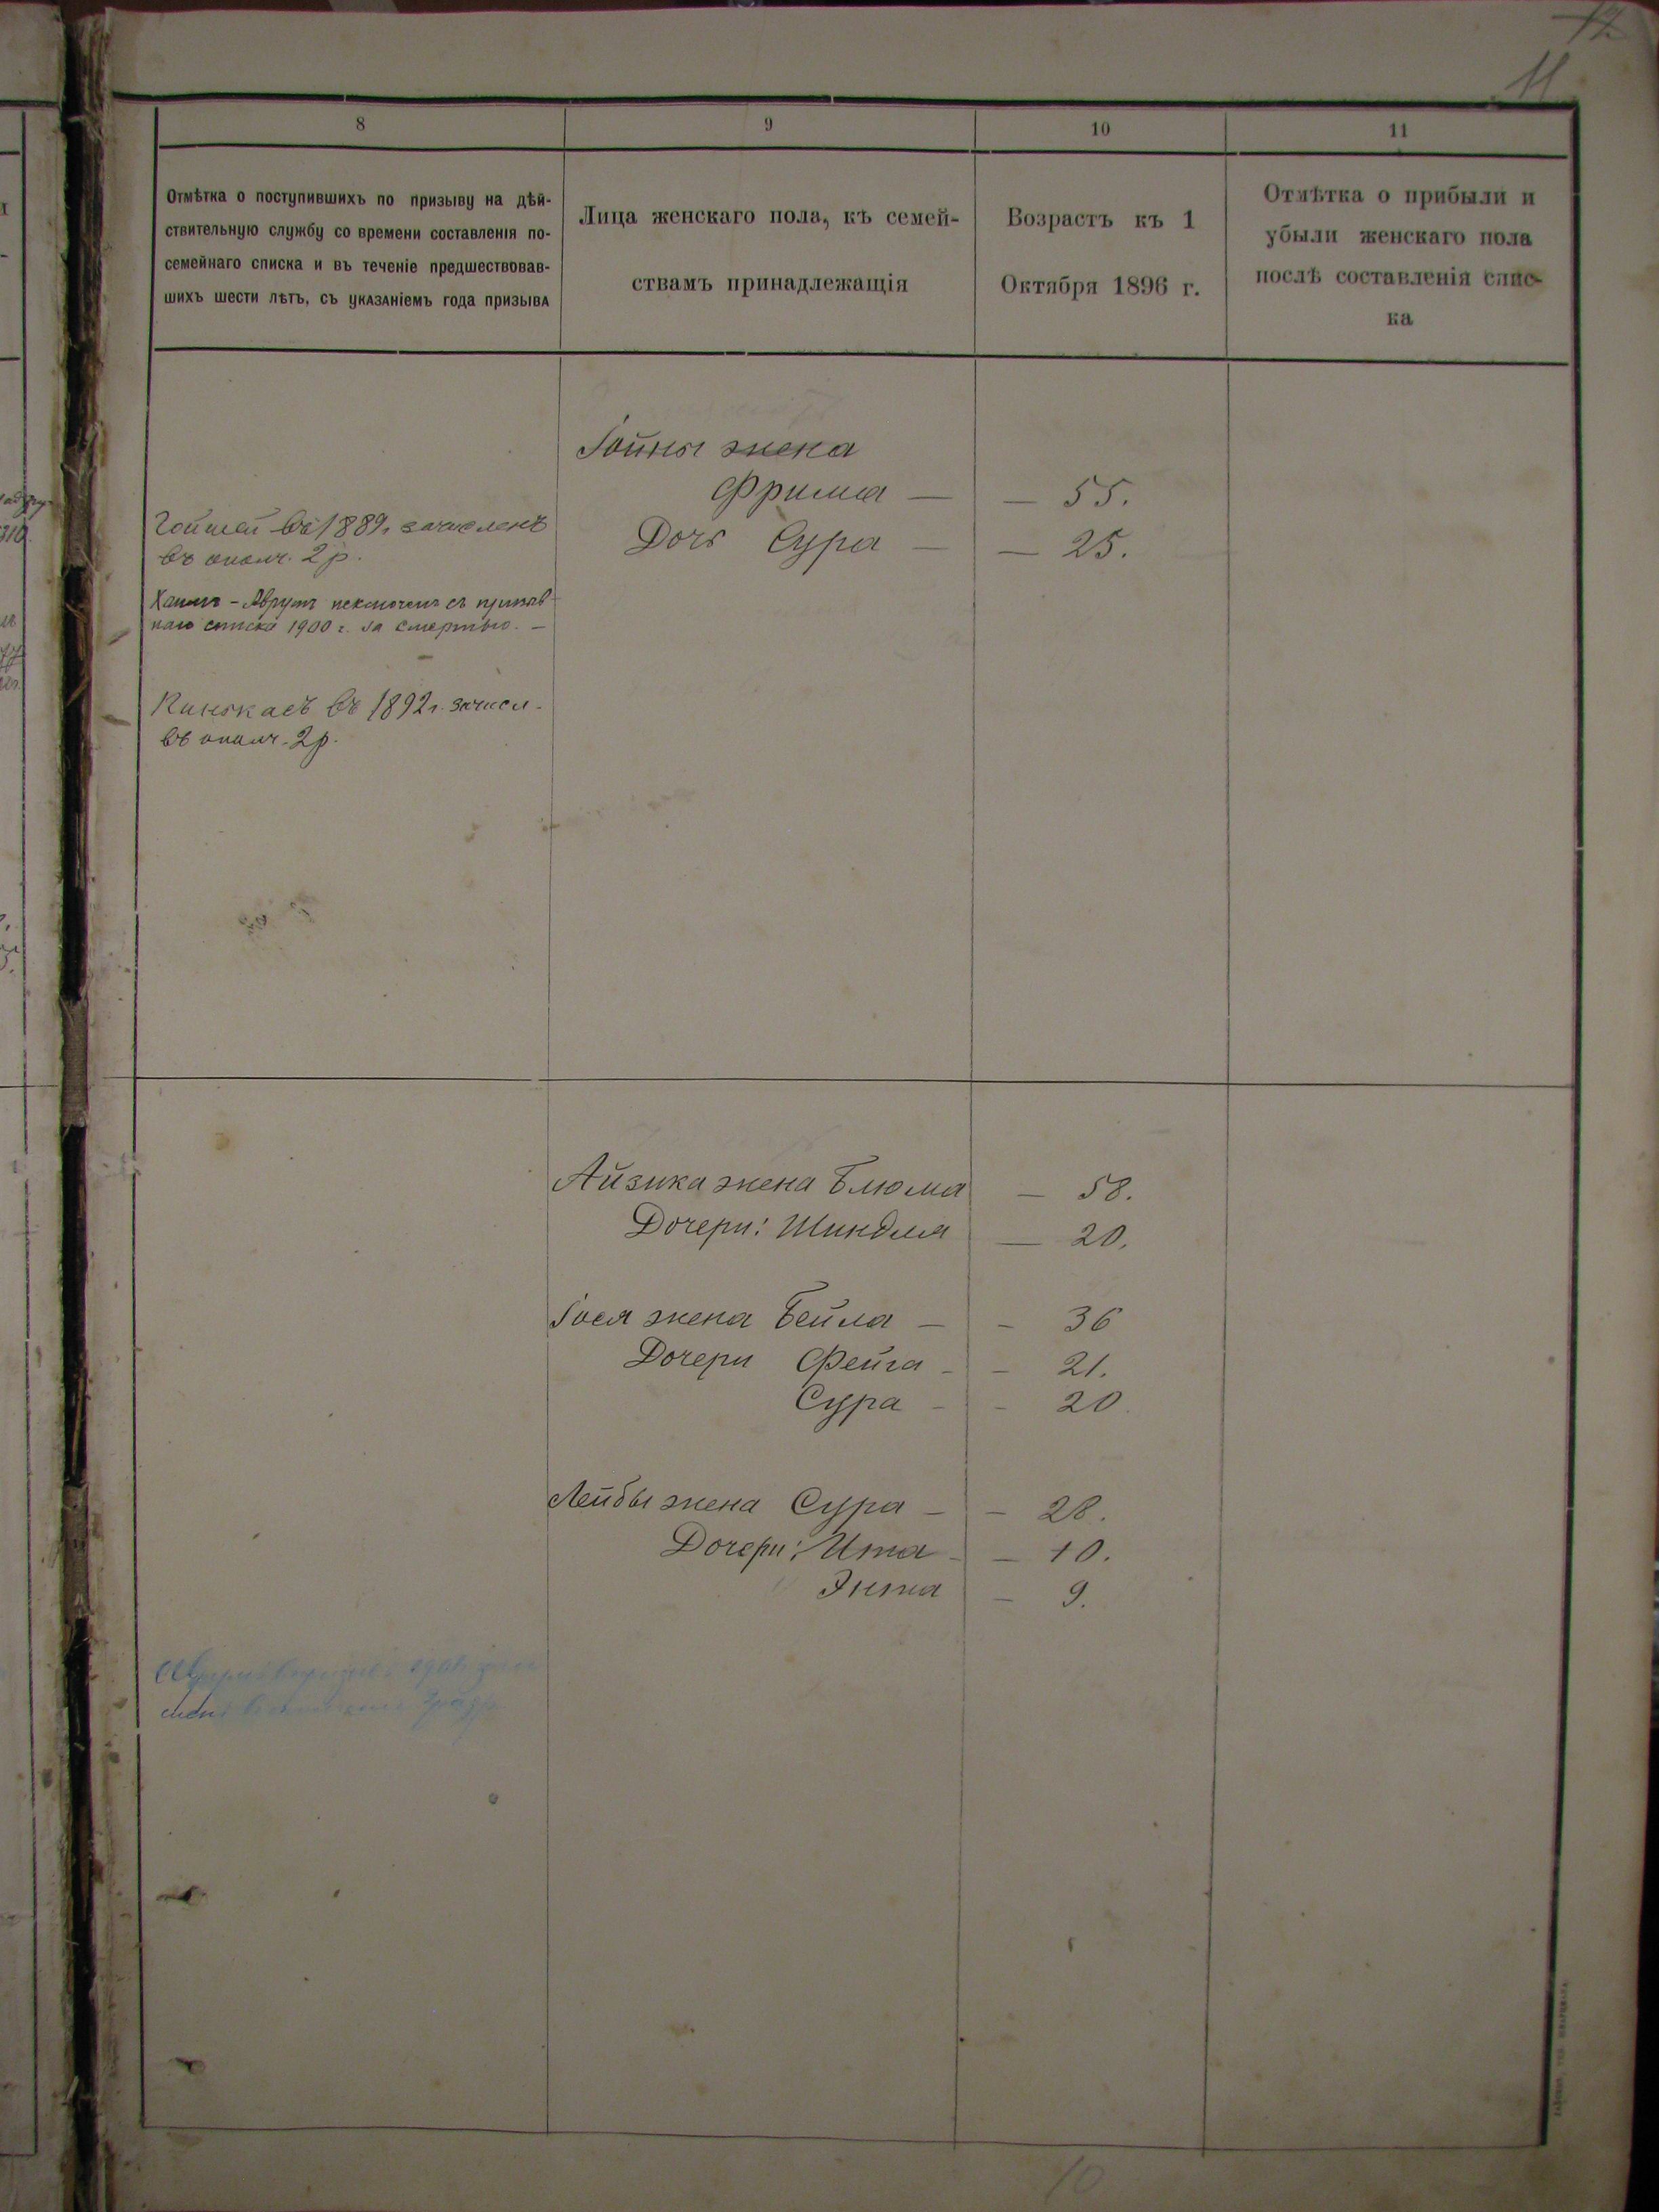 11
8
9
10
11
Отмѣтка о поступившихъ по призыву на дѣй-
ствительную службу со времени составленія по-
семейнаго списка и въ теченіе предшествовав-
шихъ шести лѣтъ, съ указаніемъ года призыва
Лица женскаго пола, къ семей-
ствамъ принадлежащія
Возрастъ къ 1
Октября 1896 г.
Отмѣтка о прибыли и
убыли женскаго пола
послѣ составленія спис-
ка
Іойны жена
Фрима — — 55.
Дочь Сура — — 25.
въ 1889 г. зачисленъ
въ ополч. 2 р.
Хаимъ-Аврумъ исключенъ съ призыв
наго списка 1900 г. за смертью. —
въ 1892 г. зачисл.
въ ополч. 2 р.
Айзика жена Блюма — 58.
Дочери: Шиндля — 20.
Іося жена Бейла — — 36
Дочери Фейга — — 21.
Сура — — 20.
Лейбы жена Сура — — 28.
Дочери: Ита — — 10.
Энта — 9.
10